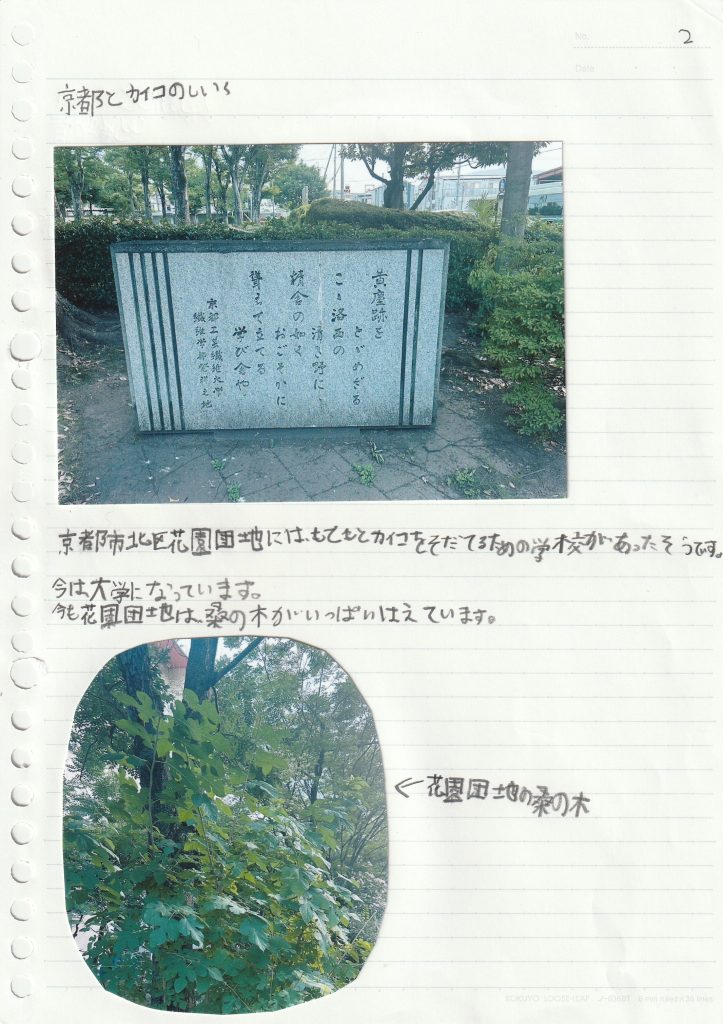 No. 2
Date
京都とカイコのしいく
黄塵跡を
とゞめざる
こゝ洛西の
清き野に
精舎の如く
おごそかに
聳えて立てる
学び舎や
京都工芸繊維大学
繊維学部発祥之地
京都市北区花園団地には、もともとカイコをそだてるための学校があったそうです。
今は大学になっています。
今も花園団地は桑の木がいっぱいはえています。
←花園団地の桑の木
KOKUYO LOOSE-LEAF 6 mm ruled×36 lines